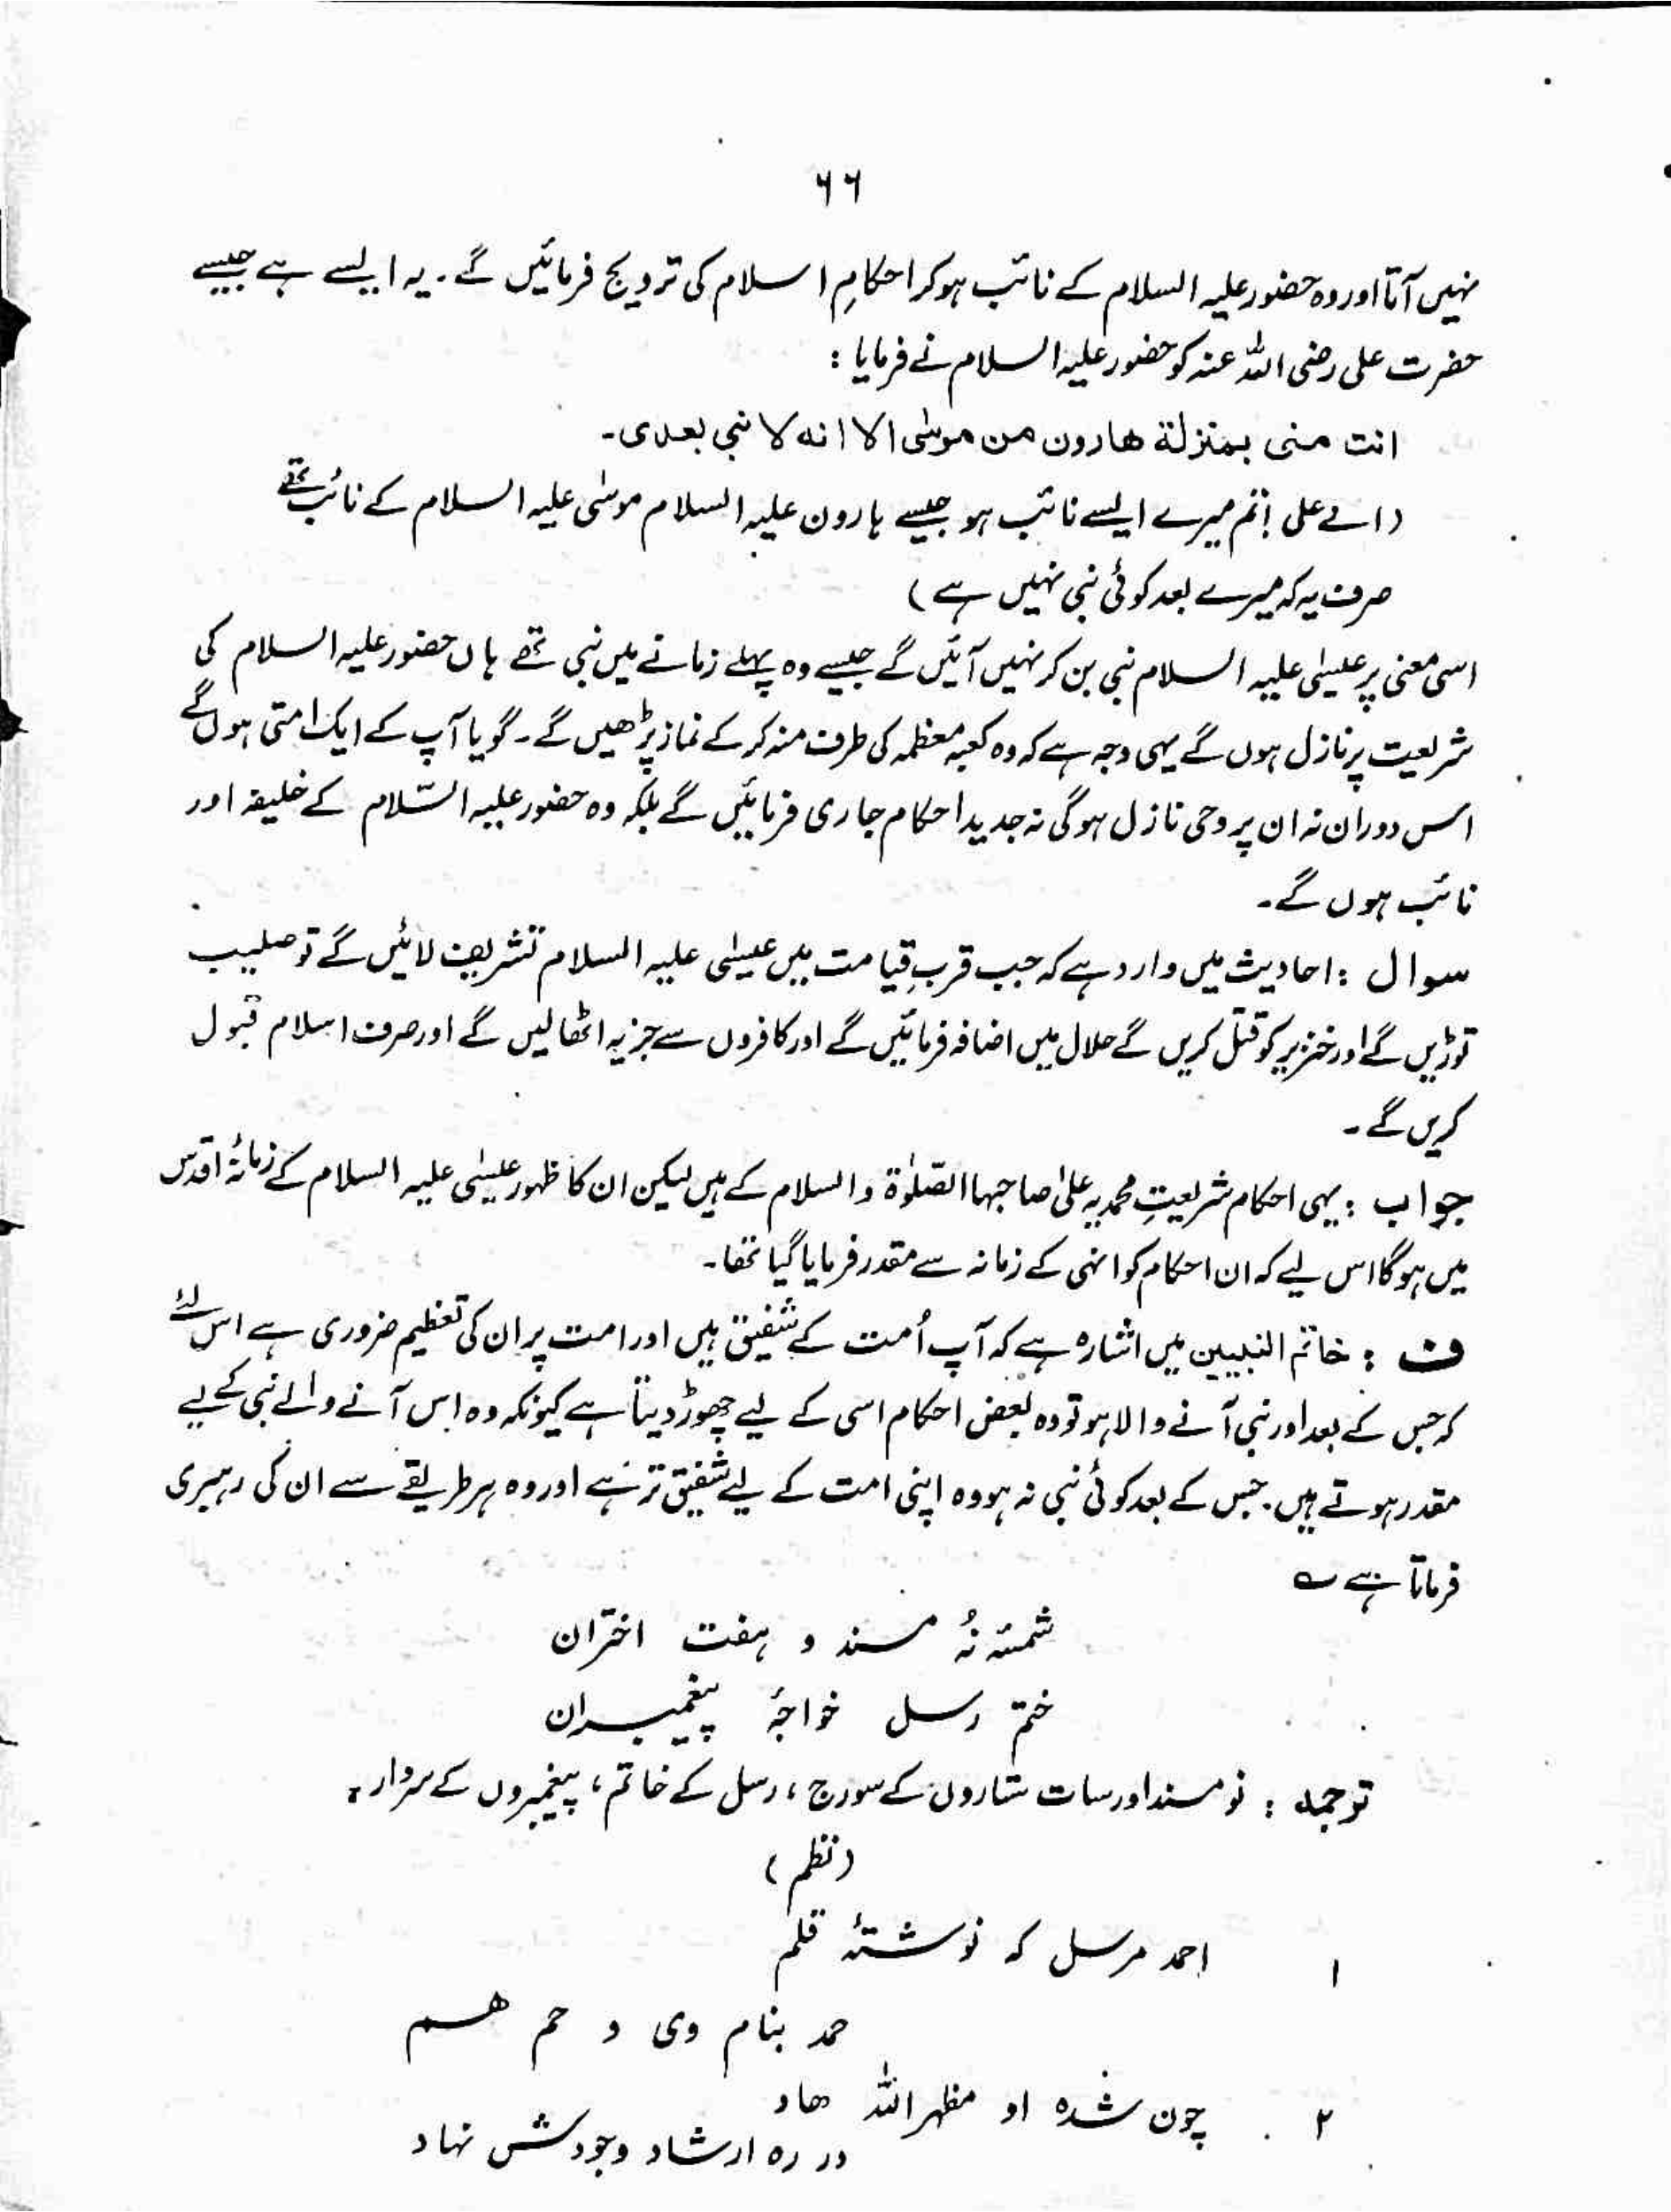 ۶۶
نہیں آتا اور وہ حضور علیہ السلام کے نائب ہوکر احکامِ اسلام کی ترویج فرمائیں گے۔ یہ ایسے ہے جیسے
حضرت علی رضی اللہ عنہ کو حضور علیہ السلام نے فرمایا :
انت منی بمنزلة ھارون من موسٰی الا انه لا نبی بعدی۔
(اے علی! تم میرے ایسے نائب ہو جیسے ہارون علیہ السلام موسٰی علیہ السلام کے نائب تھے
صرف یہ کہ میرے بعد کوئی نبی نہیں ہے)
اسی معنی پر عیسٰی علیہ السلام نبی بن کر نہیں آئیں گے جیسے وہ پہلے زمانے میں نبی تھے ہاں حضور علیہ السلام کی
شریعت پر نازل ہوں گے یہی وجہ ہے کہ وہ کعبہ معظمہ کی طرف منہ کر کے نماز پڑھیں گے۔ گویا آپ کے ایک امتی ہوں گے
اس دوران نہ ان پر وحی نازل ہوگی نہ جدید احکام جاری فرمائیں گے بلکہ وہ حضور علیہ السّلام کے خلیفہ اور
نائب ہوں گے۔
سوال : احادیث میں وارد ہے کہ جب قربِ قیامت میں عیسٰی علیہ السلام تشریف لائیں گے تو صلیب
توڑیں گے اور خنزیر کو قتل کریں گے حلال میں اضافہ فرمائیں گے اور کافروں سے جزیہ اٹھا لیں گے اور صرف اسلام قبول
کریں گے۔
جواب : یہی احکام شریعتِ محمدیہ علیٰ صاحبہا الصّلوٰۃ والسلام کے ہیں لیکن ان کا ظہور عیسٰی علیہ السلام کے زمانۂ اقدس
میں ہوگا اس لیے کہ ان احکام کو انہی کے زمانہ سے مقدر فرمایا گیا تھا۔
ف : خاتم النبیین میں اشارہ ہے کہ آپ اُمت کے شفیق ہیں اور امت پر ان کی تعظیم ضروری ہے اس لئے
کہ جس کے بعد اور نبی آنے والا ہو تو وہ بعض احکام اسی کے لیے چھوڑ دیتا ہے کیونکہ وہ اس آنے والے نبی کے لیے
مقدر ہوتے ہیں۔ جس کے بعد کوئی نبی نہ ہو وہ اپنی امت کے لیے شفیق تر ہے اور وہ ہر طریقے سے ان کی رہبری
فرماتا ہے ؎
شمسہ نُہ مسند و ہفت اختران
ختم رسل خواجۂ پیغمبران
ترجمہ : نو مسند اور سات ستاروں کے سورج، رسل کے خاتم، پیغمبروں کے سردار۔
(نظم)
۱ احمد مرسل کہ نوشتۂ قلم
حمد بنام وی و حم ھم
۲ چون شدہ او مظہر اللہ ھاد
در رہ ارشاد وجودش نہاد